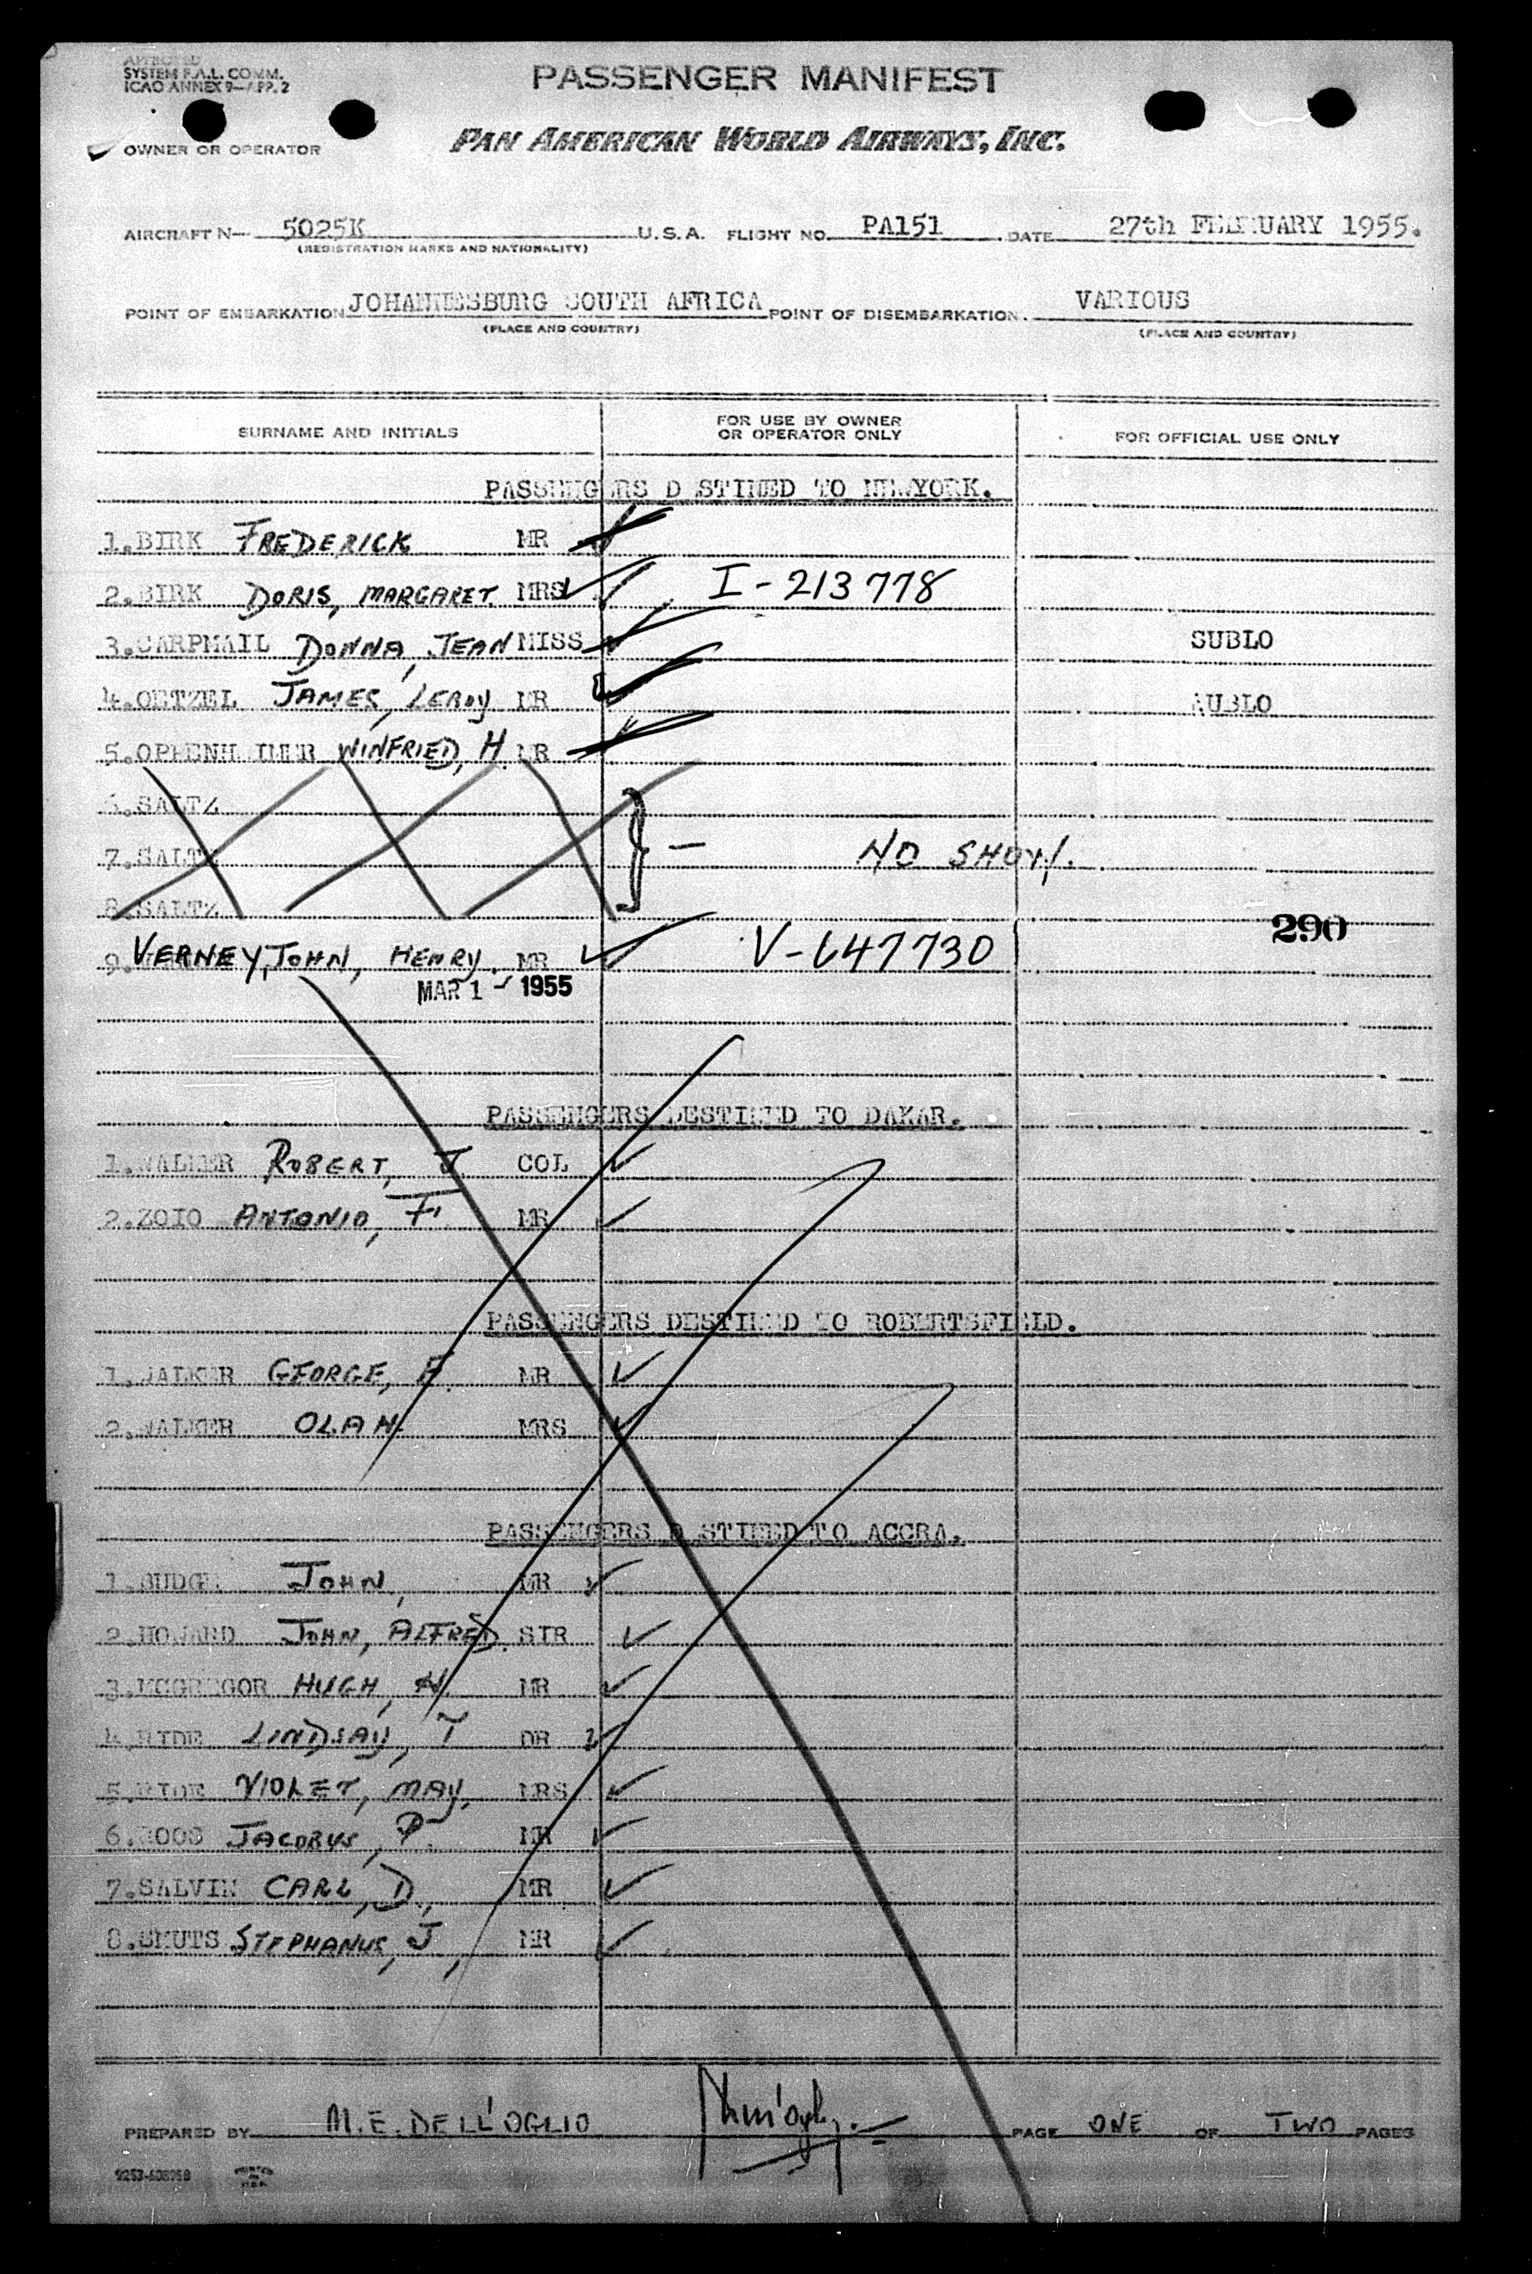 APPROVED
SYSTEM F.A.L. COMM.
ICAO ANNEX 9—APP. 2
PASSENGER MANIFEST
OWNER OR OPERATOR
PAN AMERICAN WORLD AIRWAYS, INC.
AIRCRAFT N— 5025K U.S.A. FLIGHT NO. PA151 DATE 27th FEBRUARY 1955.
(REGISTRATION MARKS AND NATIONALITY)
POINT OF EMBARKATION JOHANNESBURG SOUTH AFRICA POINT OF DISEMBARKATION. VARIOUS
(PLACE AND COUNTRY) (PLACE AND COUNTRY)
SURNAME AND INITIALS FOR USE BY OWNER OR OPERATOR ONLY FOR OFFICIAL USE ONLY
PASSENGERS D STINED TO NEWYORK.
1.BIRK FREDERICK MR
2.BIRK DORIS, MARGARET. MRS I-213778
3.CARPMAIL DONNA, JEAN MISS SUBLO
4.OETZEL JAMES, LEROY MR AUBLO
5.OPPENH IMER WINFRIED, H. MR
6.SALTZ
7.SALTZ NO SHOW.
8.SALTZ
290
9. VERNEY, JOHN, HENRY. MR V-647730
MAR 1 - 1955
PASSENGERS DESTINED TO DAKAR.
1.WALKER ROBERT, J. COL
2.ZOIO ANTONIO, F. MR
PASSENGERS DESTINED TO ROBERTSFIELD.
1.WALKER GEORGE, F. MR
2.WALKER OLAH. MRS
PASSENGERS D STINED TO ACCRA.
1.BUDGE JOHN, MR
2.HOWARD JOHN, ALFRED. STR
3.MCGREGOR HUGH, H. MR
4.RIDE LINDSAY, T DR
5.RIDE VIOLET, MAY. MRS
6.ROOS JACOBUS, P. MR
7.SALVIN CARL, D., MR
8.SMUTS STEPHANUS, J, MR
PREPARED BY M.E. DELL'OGLIO PAGE ONE OF TWO PAGES
PRINTED IN U.S.A.